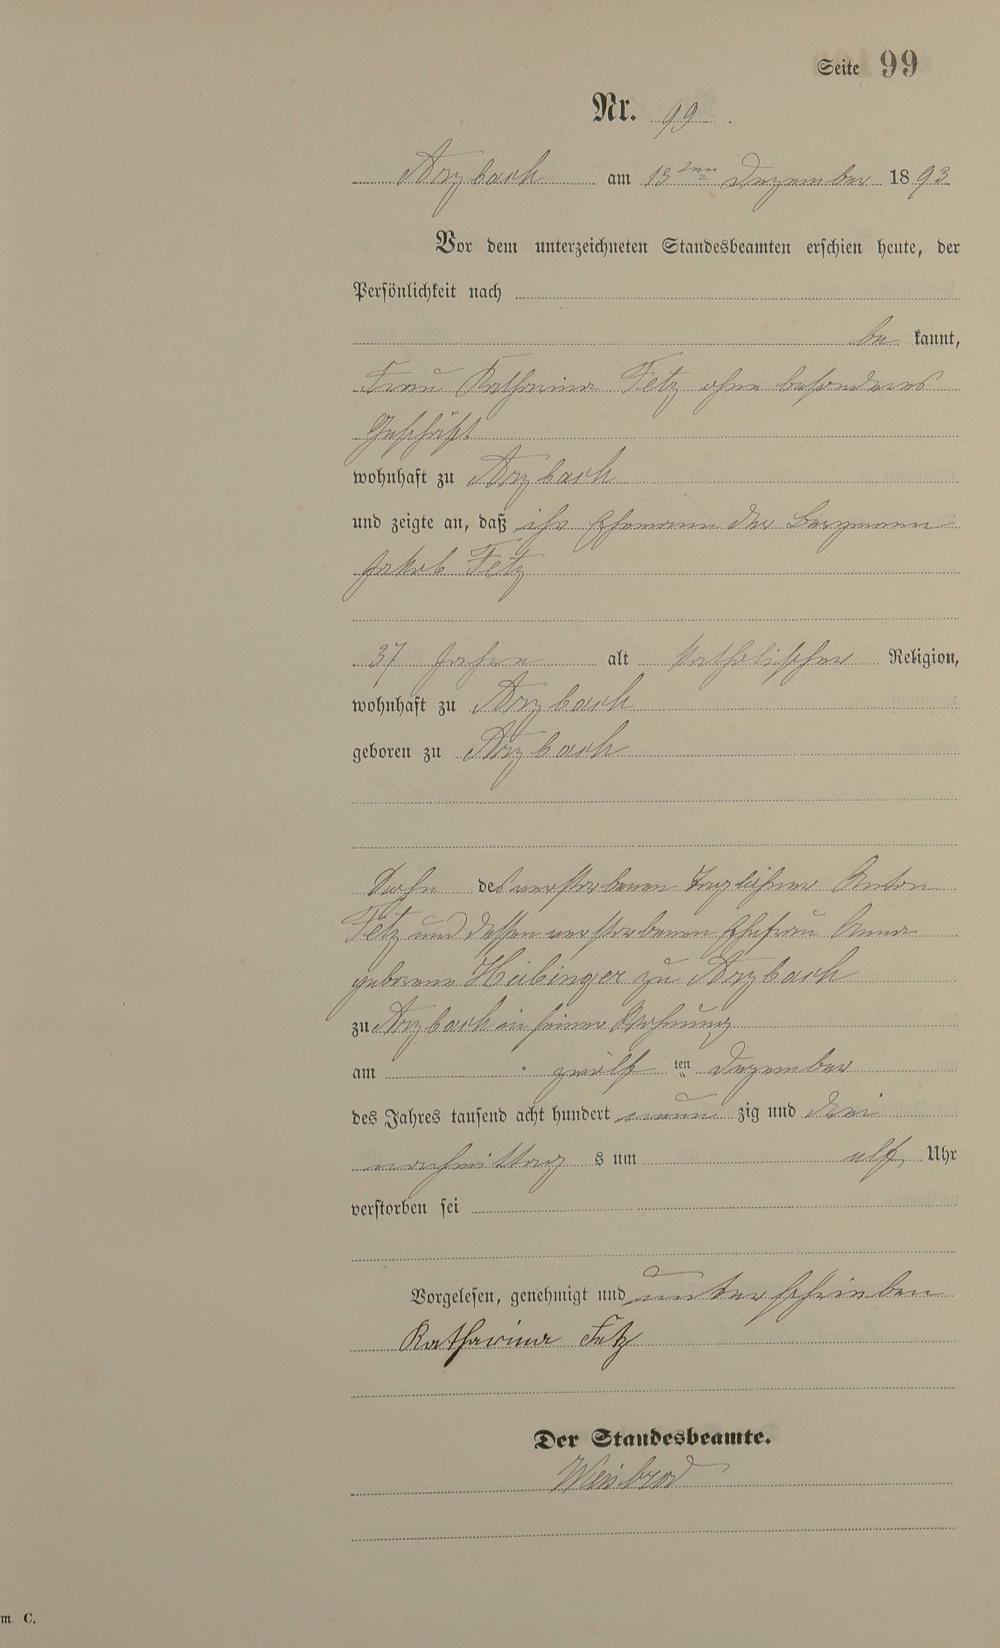 Seite 99
Nr. 99.
Arzbach am 13ten Dezember 1893
Vor dem unterzeichneten Standesbeamten erschien heute, der
Persönlichkeit nach
be kannt,
Frau Katharina Fetz ohne besonderes
Geschäft
wohnhaft zu Arzbach
und zeigte an, daß ihr Ehemann der Bergmann
Jakob Fetz
37 Jahre alt katholischer Religion,
wohnhaft zu Arzbach
geboren zu Arzbach
Sohn des verstorbenen Taglöhner Anton
Fetz und dessen verstorbenen Ehefrau Anna
geborene Hübinger zu Arzbach
zu Arzbach in seiner Wohnung
am zwölf ten Dezember
des Jahres tausend acht hundert neun zig und drei
nachmittag s um elf Uhr
verstorben sei
Vorgelesen, genehmigt und unterschrieben
Katharina Fetz
Der Standesbeamte.
m. C.